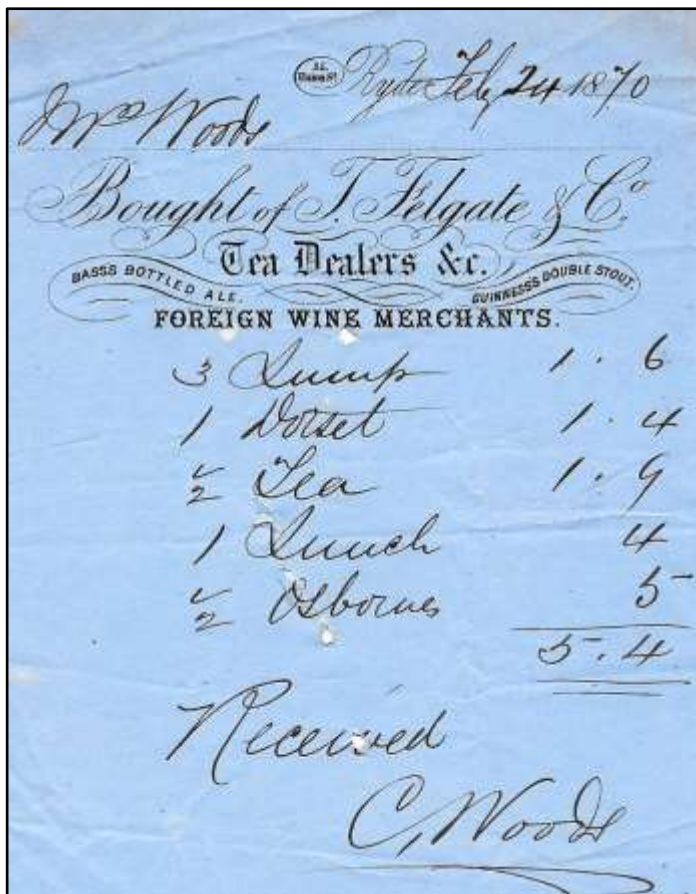 Union St Ryde Feb 24 1870
Mrs Woods
Bought of T. Felgate & Co.
Tea Dealers &c.
BASS'S BOTTLED ALE. GUINNESS'S DOUBLE STOUT.
FOREIGN WINE MERCHANTS.
3 Lump 1. 6
1 Dorset 1. 4
1/2 Tea 1. 9
1 Lunch 4
1/2 Osbornes 5
5. 4
Received
C, Woods